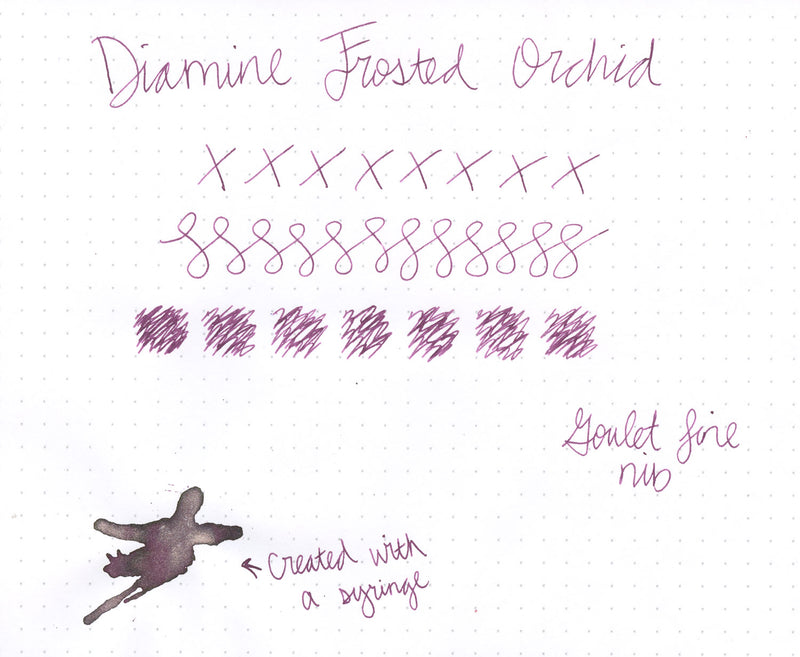 Diamine Frosted Orchid
X X X X X X X X
Goulet fine
nib
← Created with
a syringe